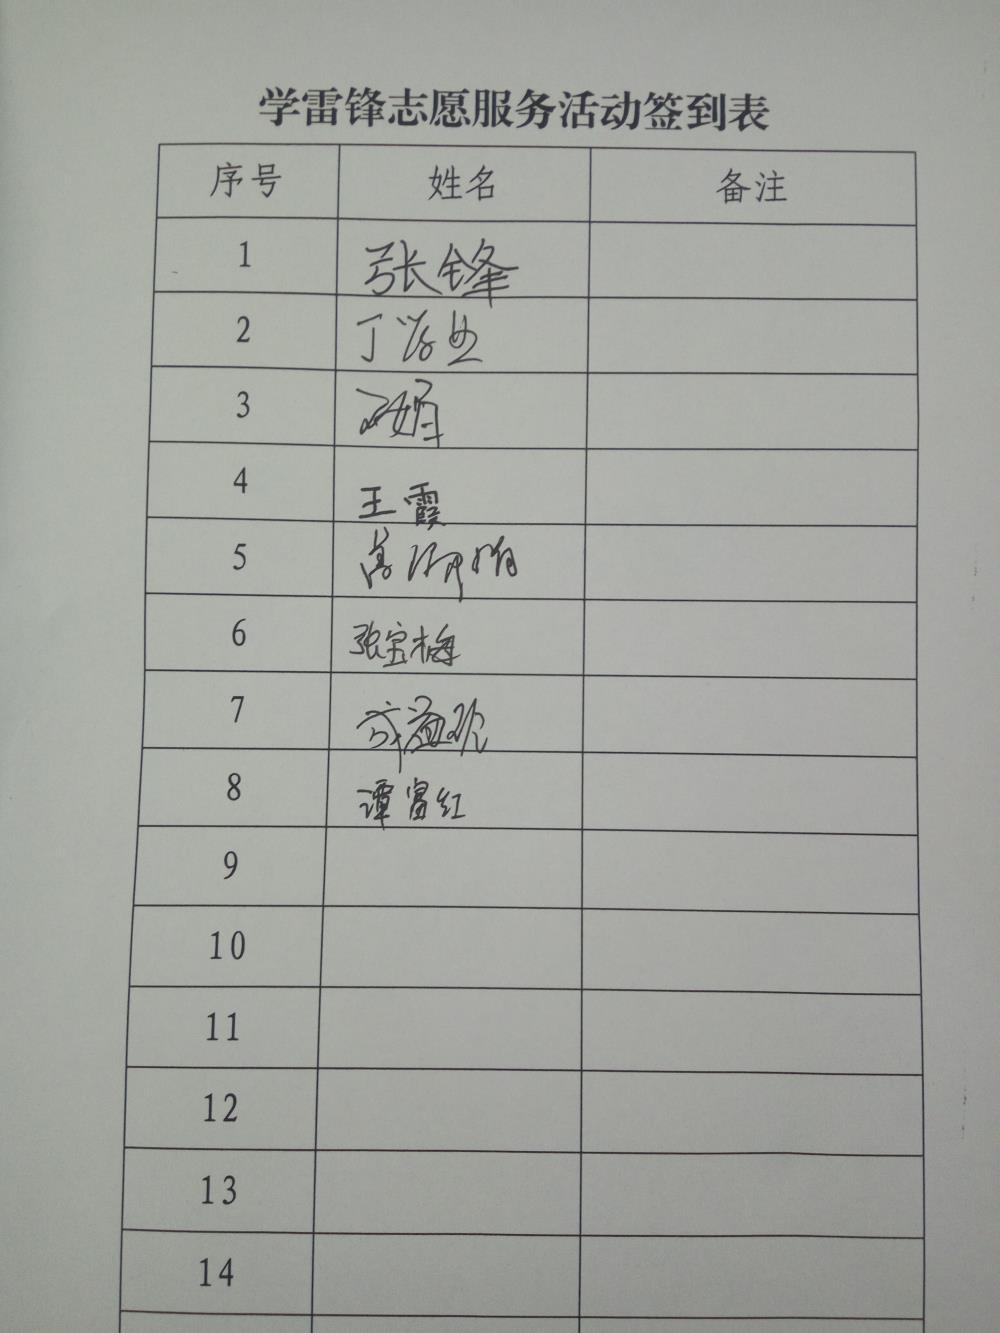 学雷锋志愿服务活动签到表
序号 姓名 备注
1 张锋
2 丁
3
4 王霞
5
6 张宝梅
7
8 谭富红
9
10
11
12
13
14